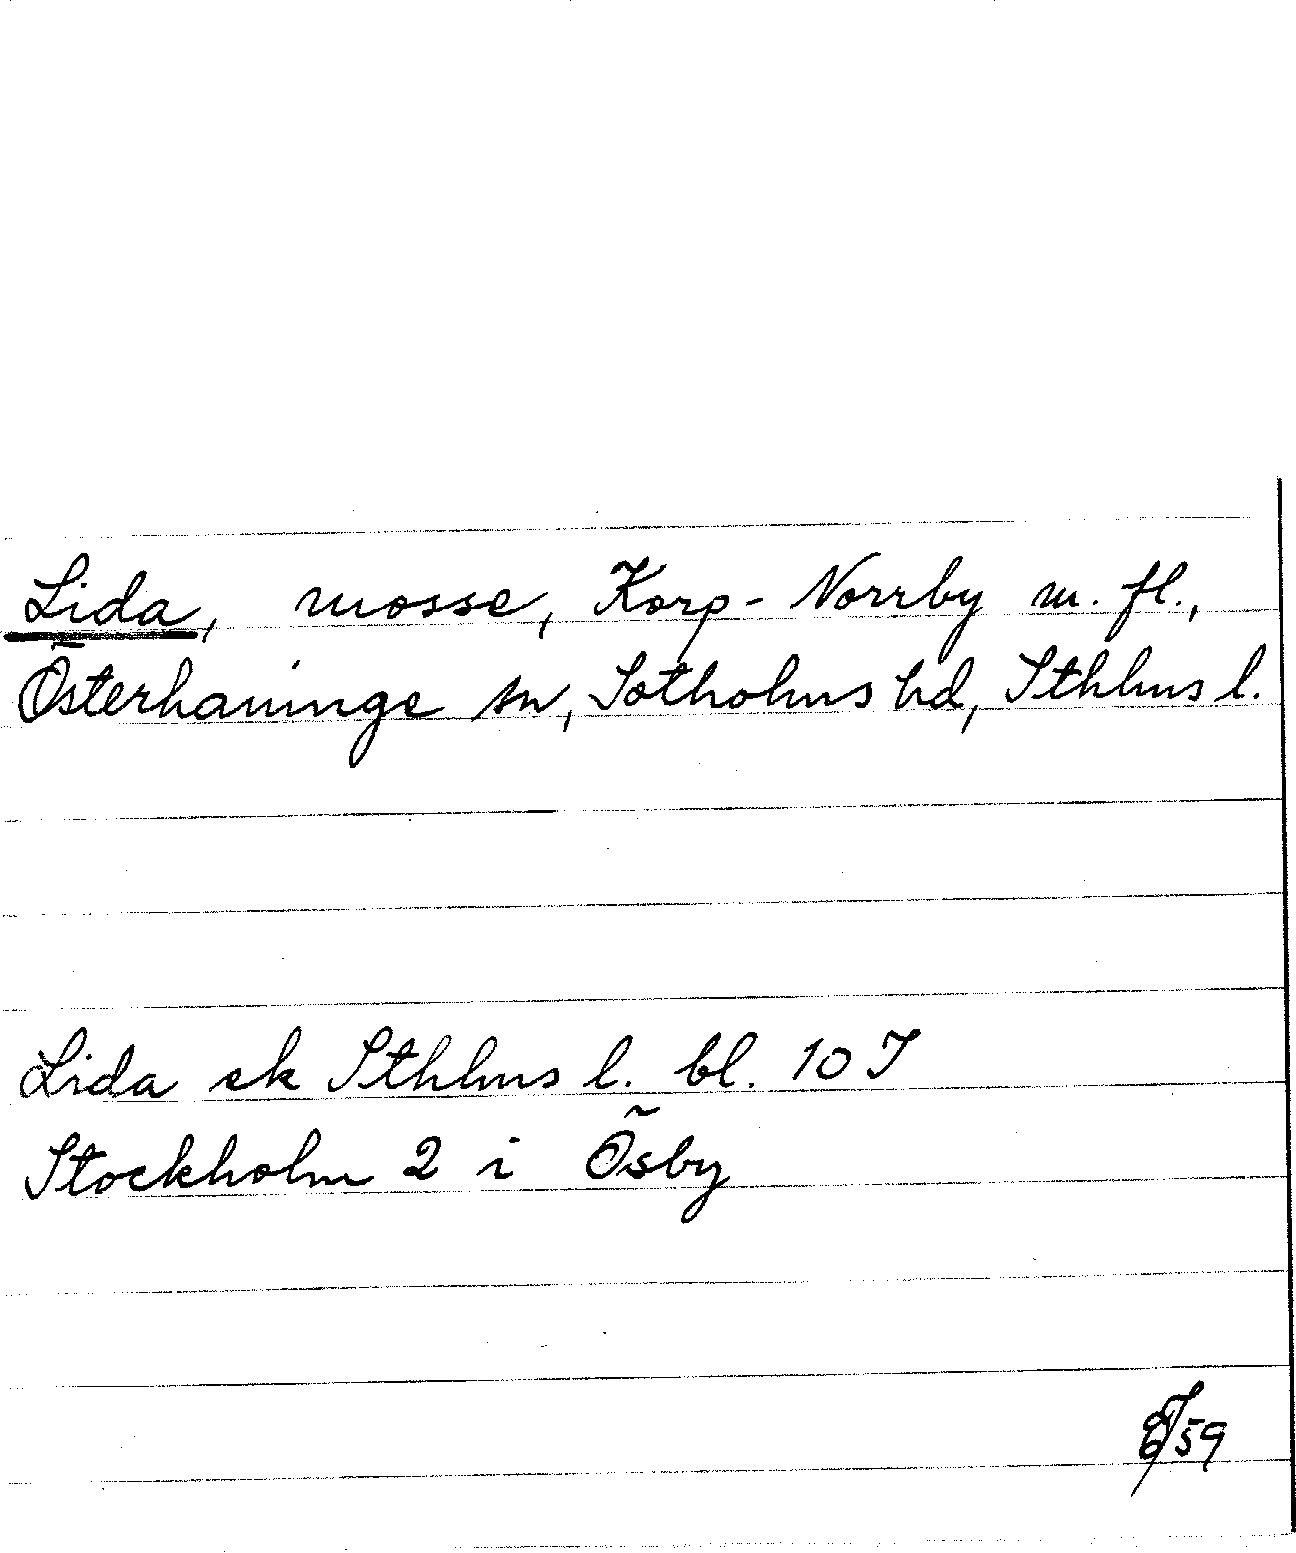 Lida, mosse, Korp-Norrby m. fl.,
Österhaninge sn, Sotholms hd, Sthlms l.
Lida ek Sthlms l. bl. 10 I
Stockholm 2 i Ösby
59